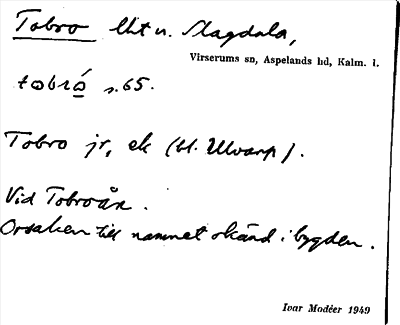 Tobro lht u. Slagdala,
Virserums sn, Aspelands hd, Kalm. l.
tobró s. 65.
Tobro jr, ek (bl. Ulvarp).
Vid Tobroån.
Orsaken till namnet okänd i bygden.
Ivar Modéer 1949